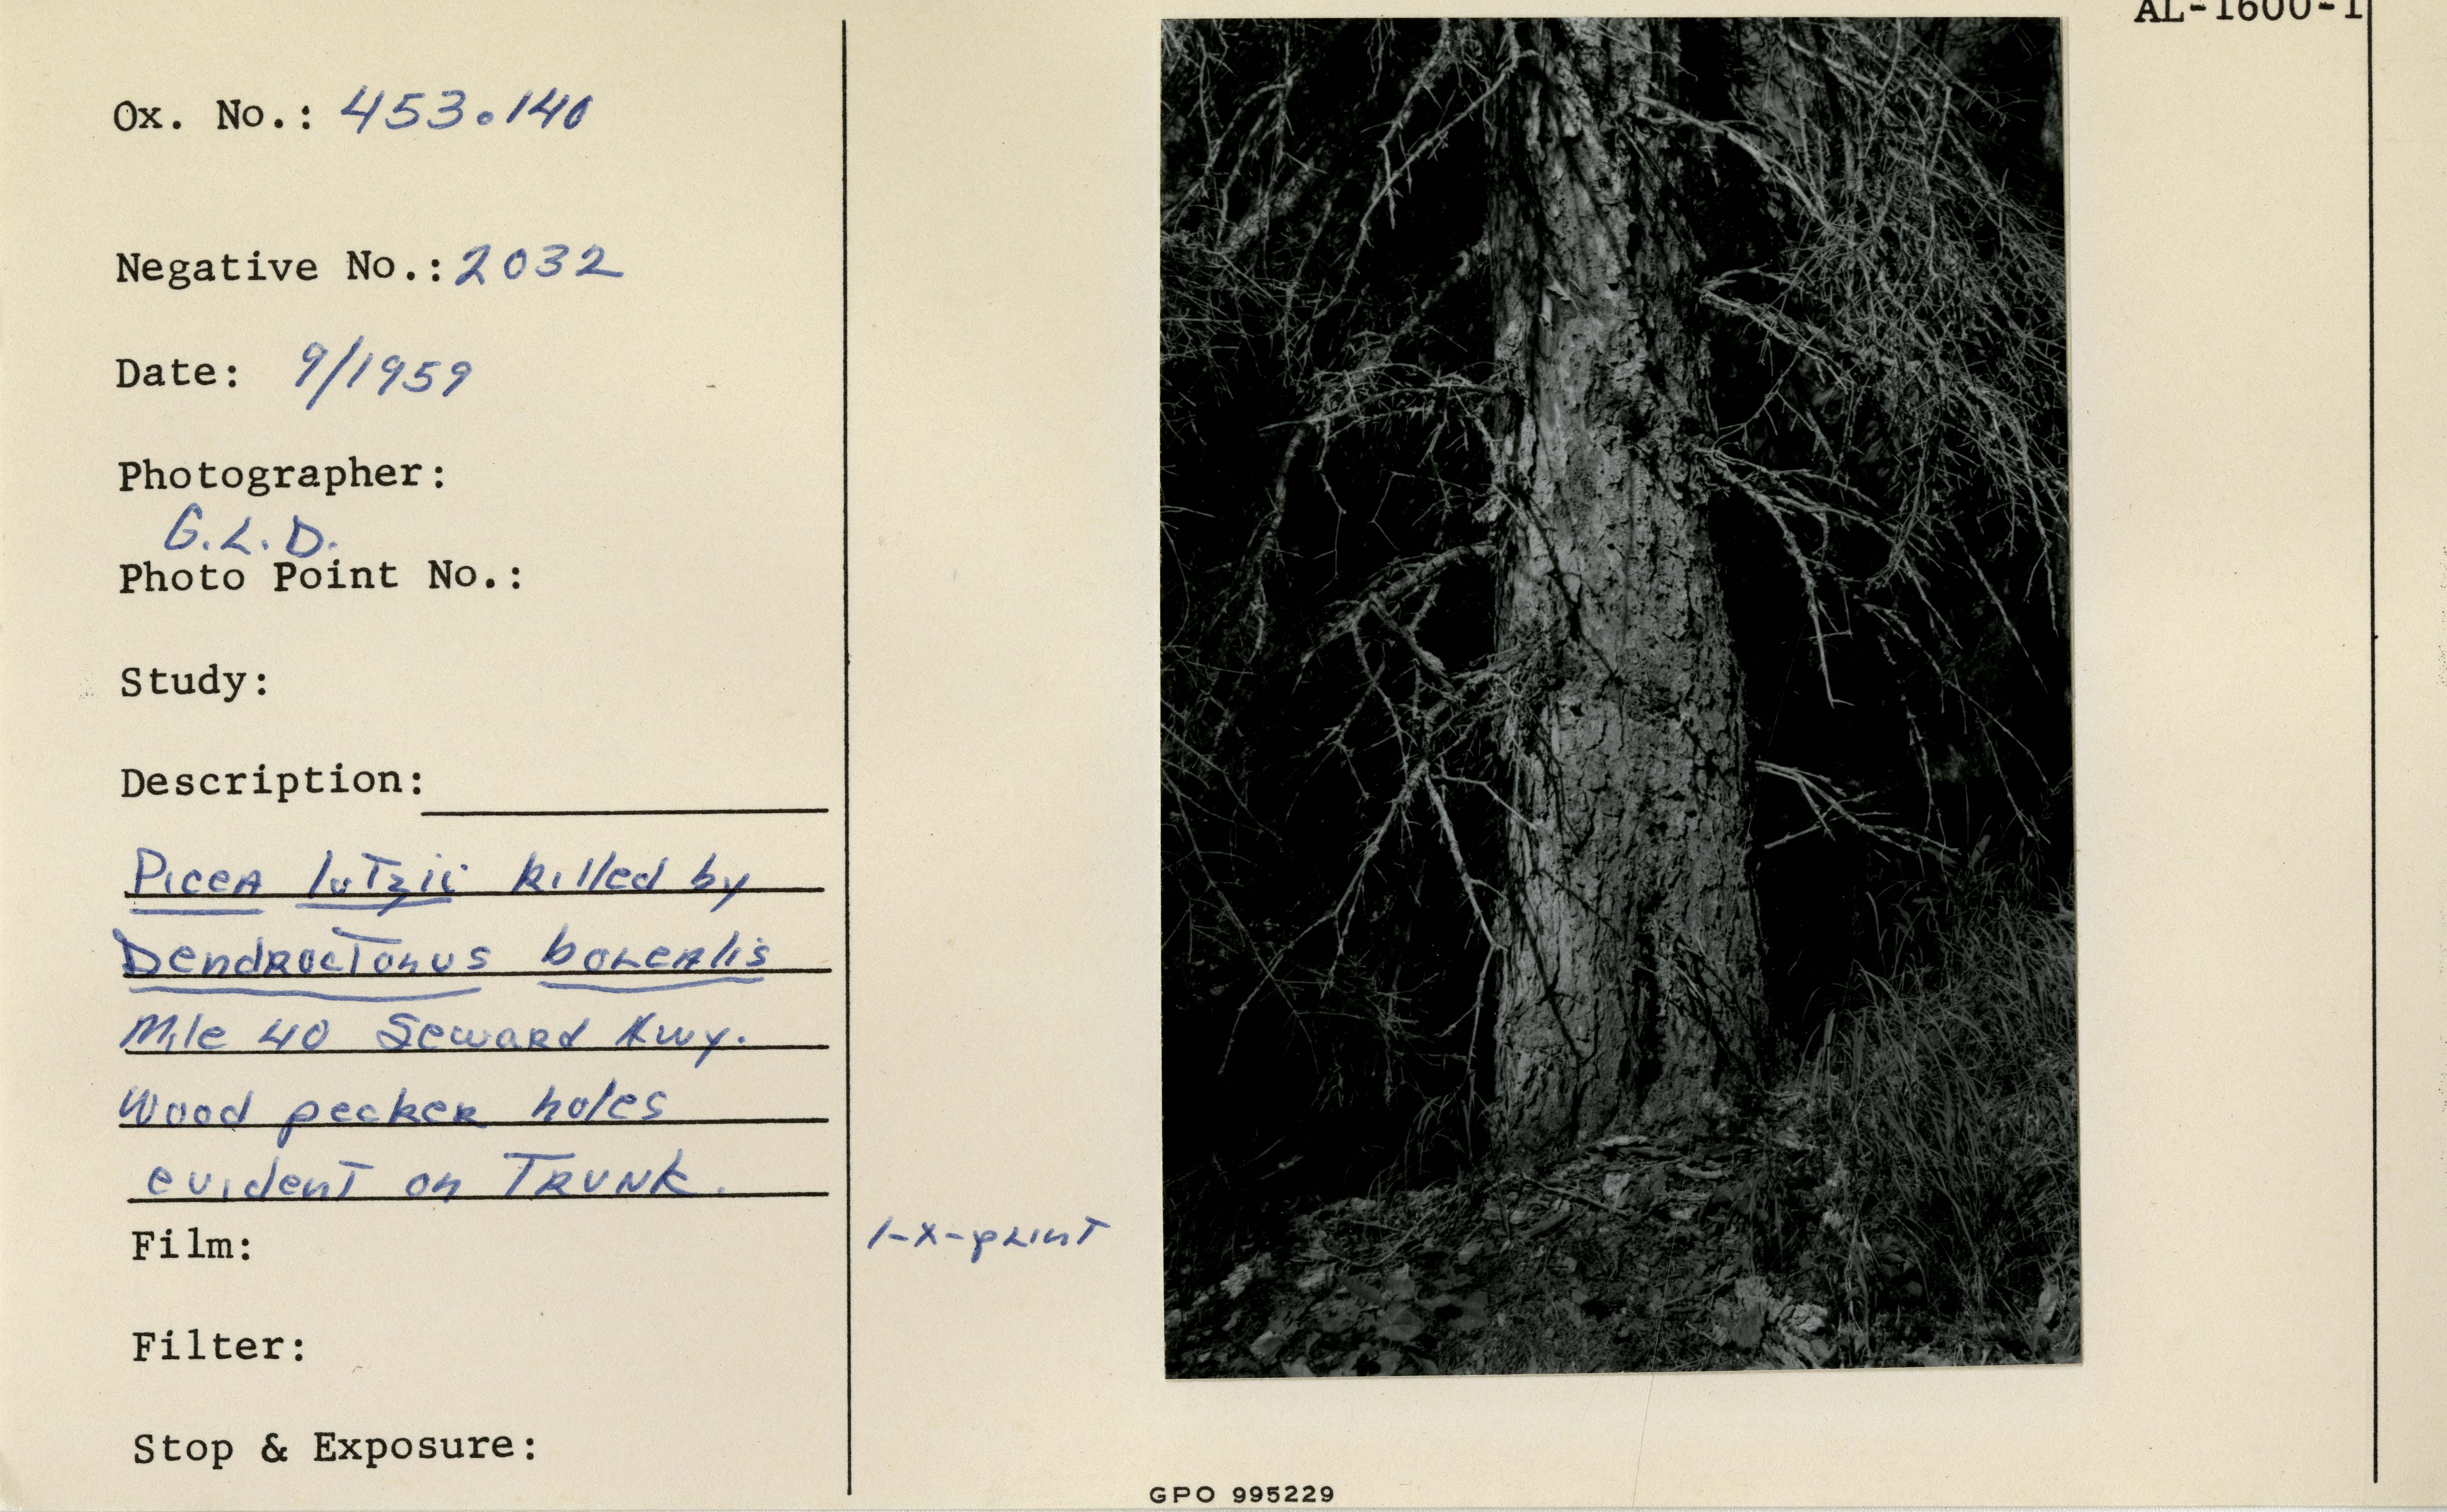 AL-1600-1
Ox. No.: 453.140
Negative No.: 2032
Date: 9/1959
Photographer:
G.L.D.
Photo Point No.:
Study:
Description:
Picea lutzii killed by
Dendroctonus borealis
Mile 40 Seward Hwy.
Wood pecker holes
evident on Trunk.
Film:
1-x-print
Filter:
Stop & Exposure:
GPO 995229